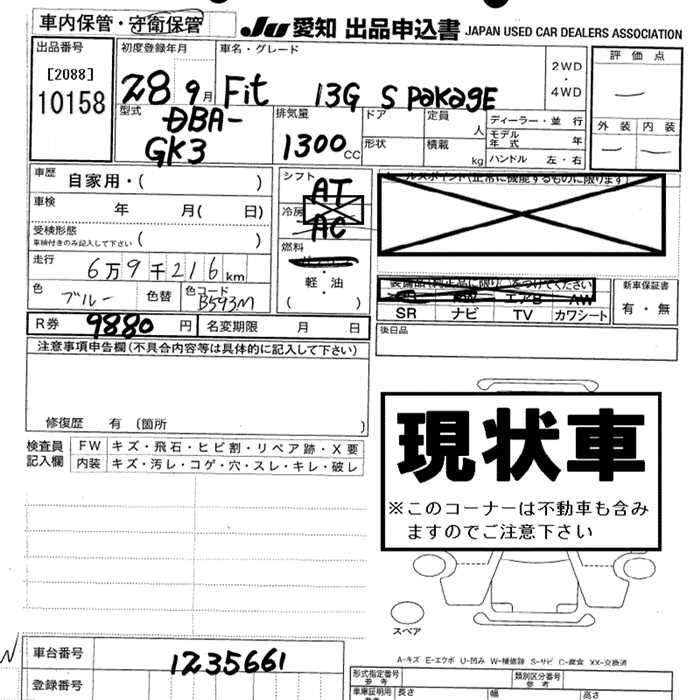 車内保管・守衛保管
JU 愛知 出品申込書 JAPAN USED CAR DEALERS ASSOCIATION
出品番号
[2088]
10158
初度登録年月
28 9月
車名・グレード
Fit 13G S PaKaGE
2WD
・
4WD
評価点
—
外装 内装
— —
型式
DBA-
GK3
排気量
1300cc
ドア
形状
定員 人
積載 kg
ディーラー・並 行
モデル年式 年
ハンドル 左・右
車歴 自家用・( )
車検 年 月( 日)
受検形態
車検付きのみ記入して下さい ( )
走行
6万9千216km
色 ブルー
色替
色コード
B593M
シフト
AT
冷房
AC
燃料
軽・油
( )
セールスポイント(正常に機能するものに限ります)
装備品(純正品に限り)をつけてください
エアB AW
SR ナビ TV カワシート
新車保証書
有・無
R券 9880円
名変期限 月 日
後日品
注意事項申告欄(不具合内容等は具体的に記入して下さい)
修復歴 有 〔箇所 〕
検査員
記入欄
FW キズ・飛石・ヒビ割・リペア跡・X要
内装 キズ・汚レ・コゲ・穴・スレ・キレ・破レ
現状車
※このコーナーは不動車も含み
ますのでご注意下さい
スペア
A-キズ E-エクボ U-凹み W-補修跡 S-サビ C-腐食 XX-交換済
車台番号
1235661
登録番号
形式指定番号
参考
類別区分番号
参考
車庫証明用
長さ 幅 高さ